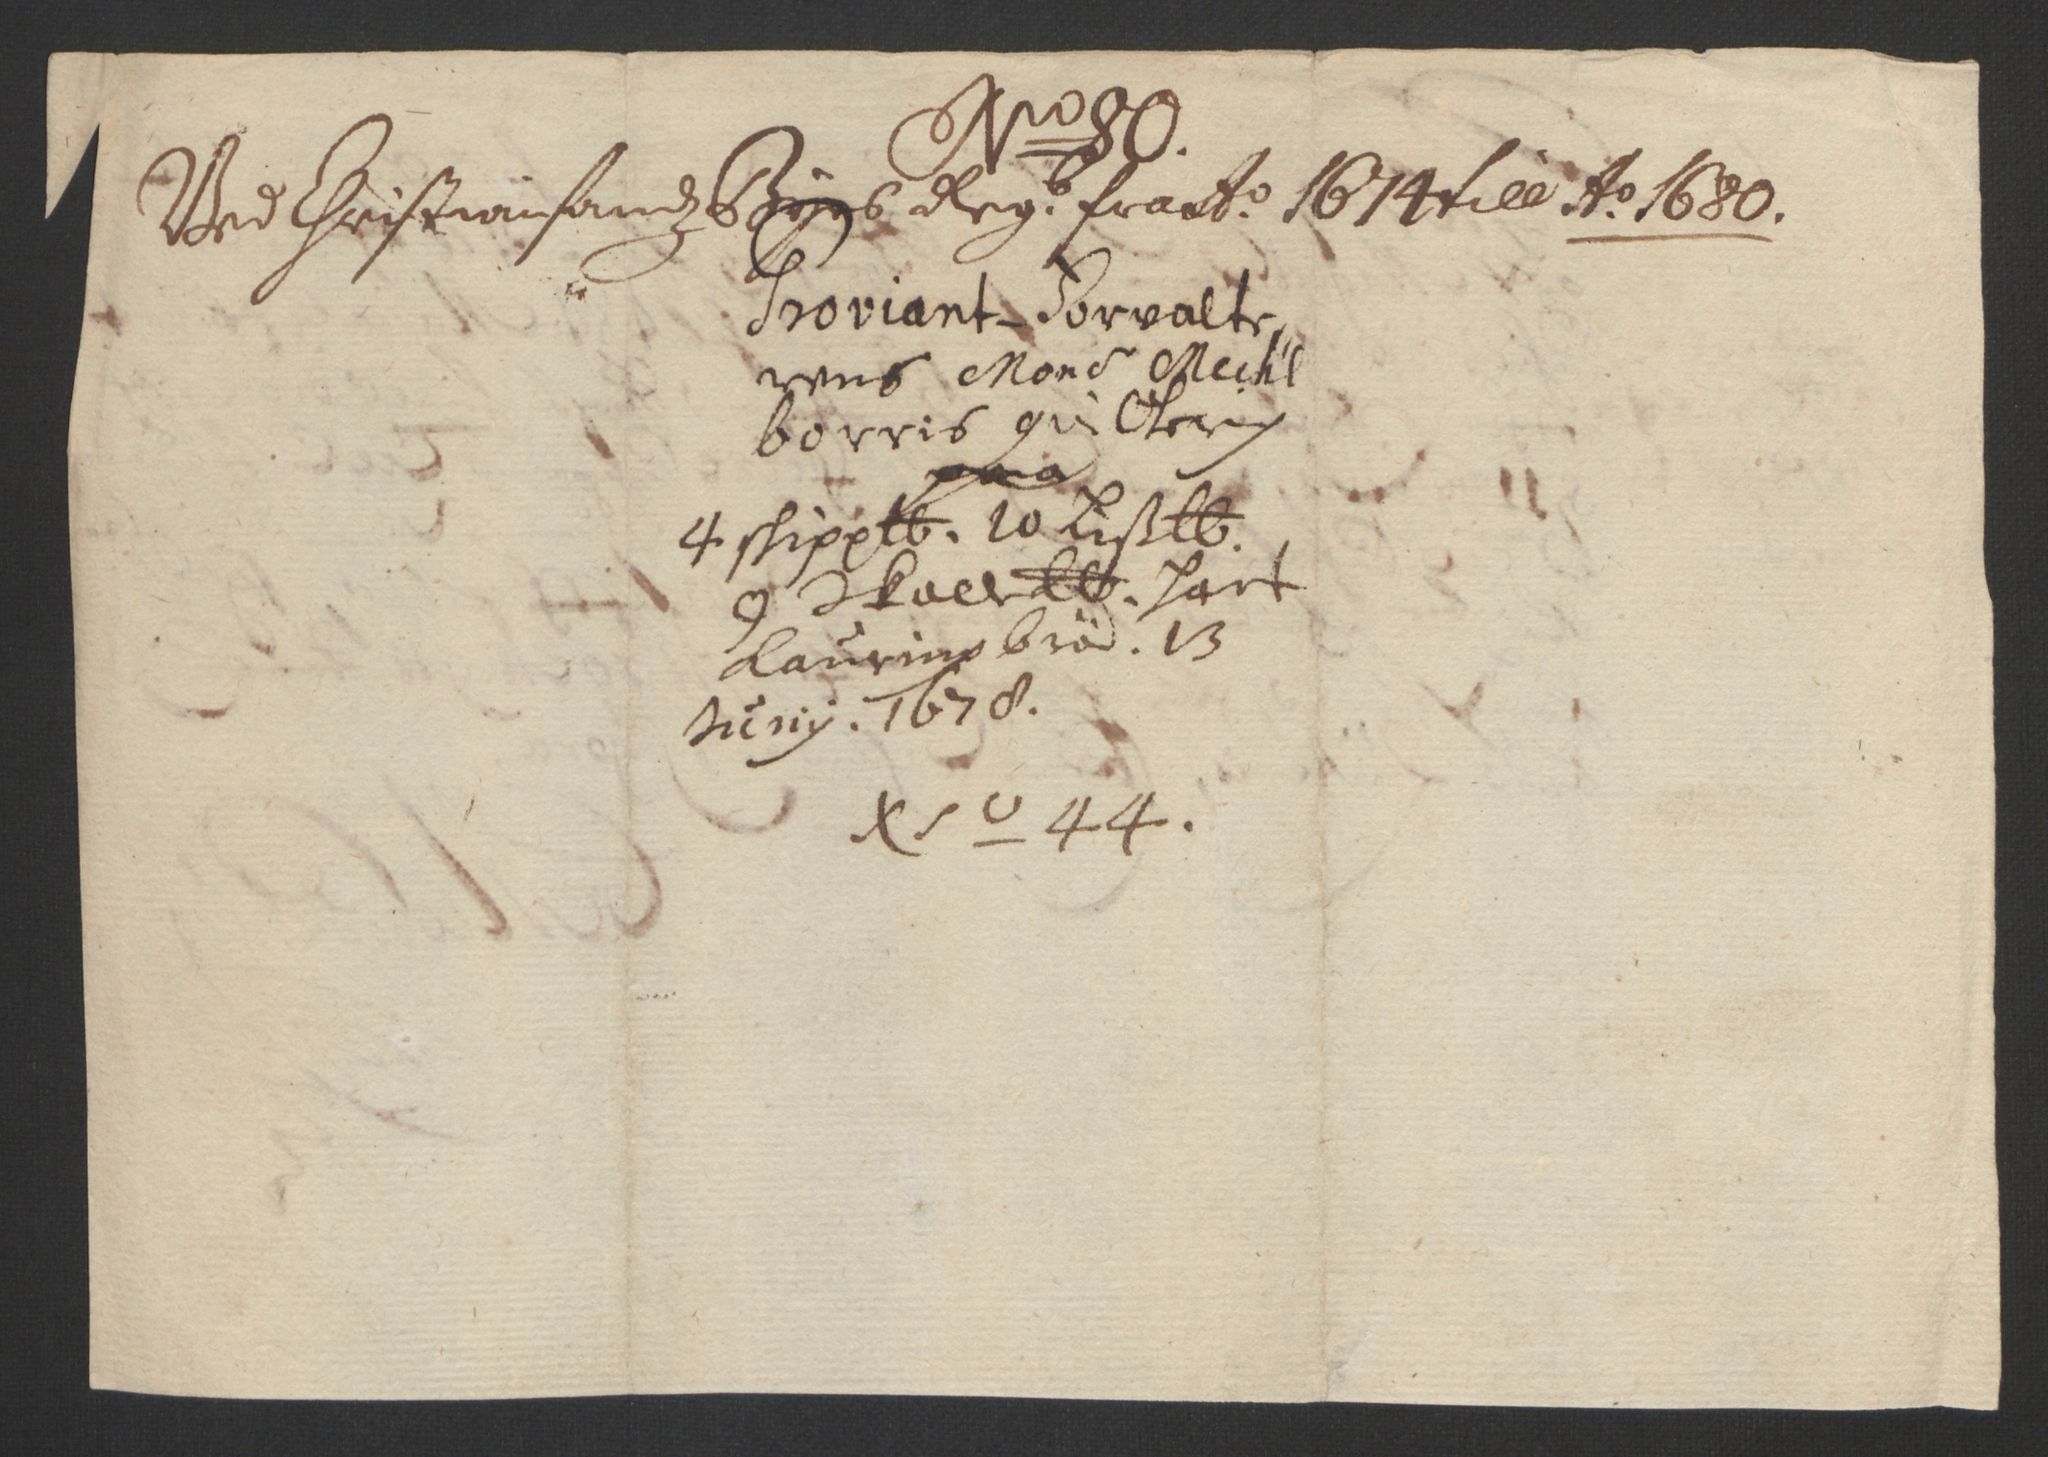 No 80.
Ved Christiansandz Byes Reg. fra Ao. 1674 till Ao. 1680.
Proviant-Forvalte,,
rens Mons Michl
borris qvitering
paa
4 skipp℔. 10 Lisß℔.
9 Skaall℔. hart
Laurings brød. 13
Junij. 1678.
No 44.